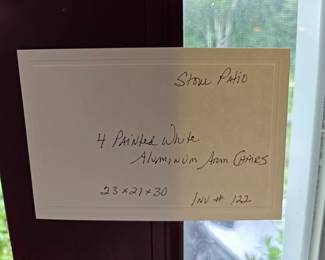 Stone Patio
4 Painted White
Aluminum Arm Chairs
23 x 21 x 30
Inv # 122